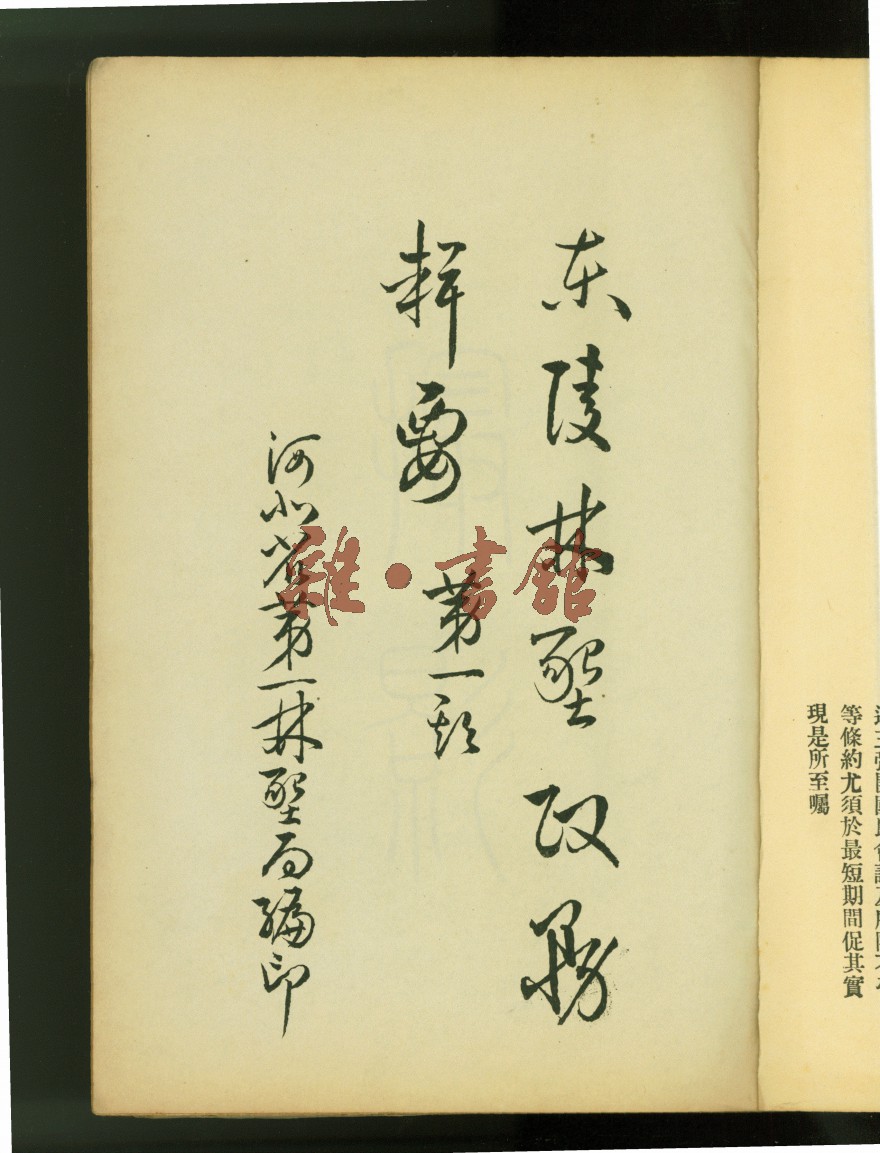 等條約尤須於最短期間促其實
現是所至囑
东陵林墾政務
輯要 第一期
河北省第一林墾局編印
雜·書館